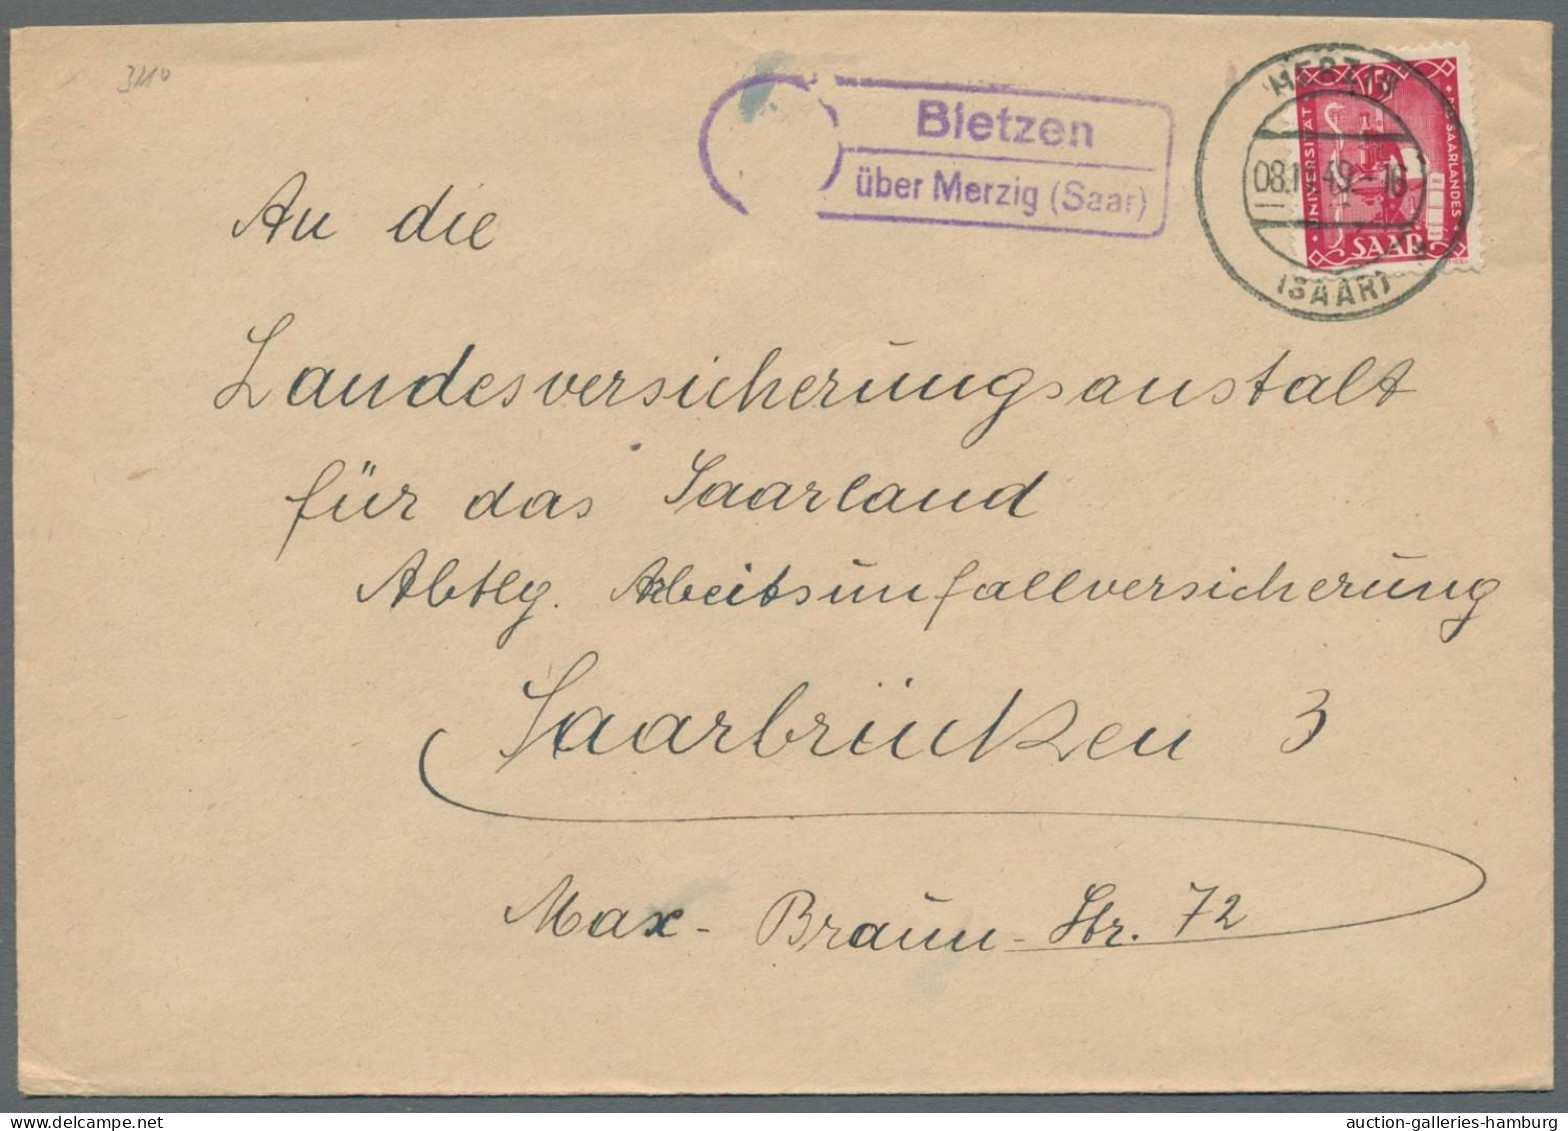 3110
Bietzen
über Merzig (Saar)
MERZIG
(SAAR)
15
UNIVERSITÄT
SAARLANDES
SAAR
An die
Landesversicherungsanstalt
für das Saarland
Abtlg. Arbeitsunfallversicherung
Saarbrücken 3
Max-Braun-Str. 72
auction-galleries-hamburg